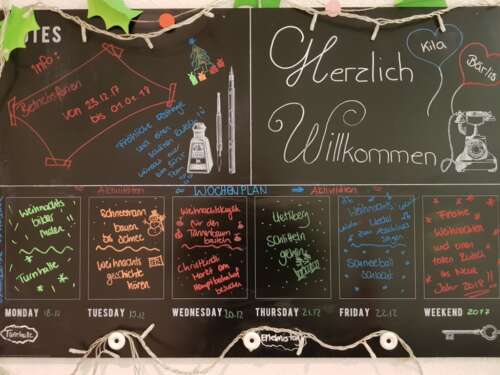 NOTES
Info:
Betriebsferien
von 23.12.17
bis 01.01.18
Fröhliche
und einen
guten Rutsch
Herzlich
Willkommen
Kita
Bärlis
Aktivitäten
WOCHENPLAN
Aktivitäten
Weihnachts
bilder
malen
Turnhalle
Schneemann
bauen
bei Schnee
Weihnachts
geschichte
hören
Weihnachtskugeln
für den
Tannenbaum
basteln
Christkindli
Markt am
Hauptbahnhof
besuchen
Uetliberg
Schlitteln
gehen
Weihnachts
Schneeball
schlacht
Frohe
Weihnachten
und einen
guten Rutsch
ins Neue
Jahr 2018!
MONDAY 18.12
TUESDAY 19.12
WEDNESDAY 20.12
THURSDAY 21.12
FRIDAY 22.12
WEEKEND 2017
Turnhalle
Erlebnistag